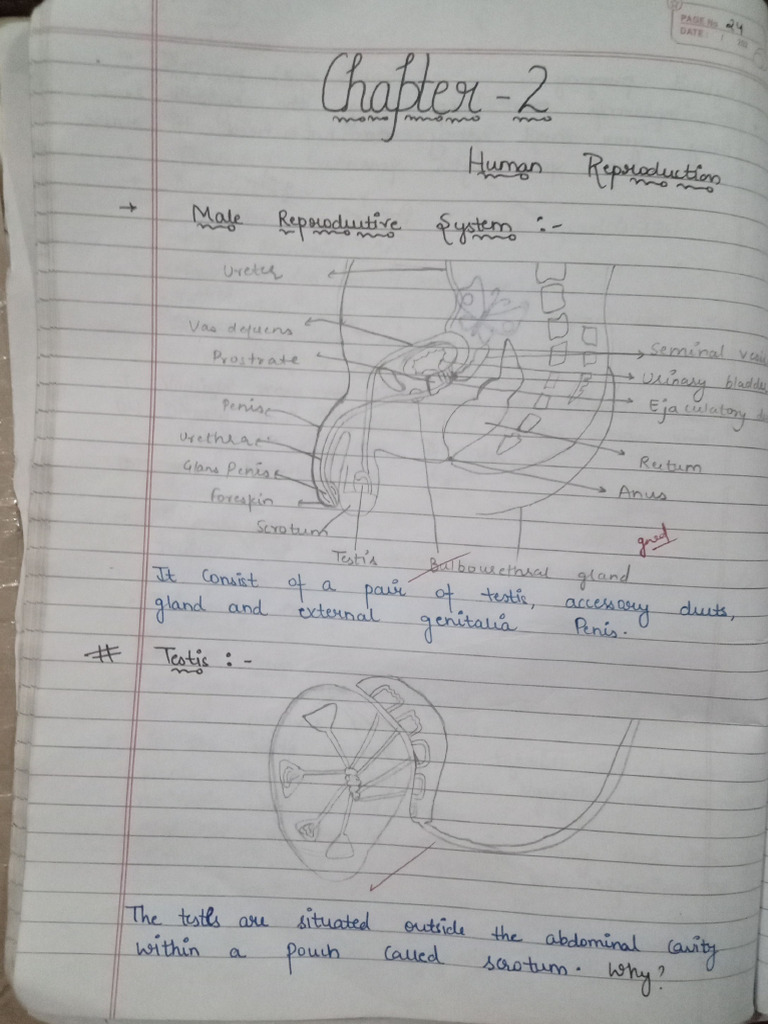 PAGE No. 24
DATE:
Chapter - 2
Human Reproduction
→ Male Reproductive System :-
Ureter
Vas deferens
Prostrate
Penise
Urethra
Glans Penise
Foreskin
Scrotum
Testis
Bulbourethral gland
Seminal vesi
Urinary bladde
Ejaculatory d
Rectum
Anus
good
It consist of a pair of testis, accessory ducts,
gland and external genitalia Penis.
# Testis :-
The testes are situated outside the abdominal cavity
within a pouch called scrotum. Why?